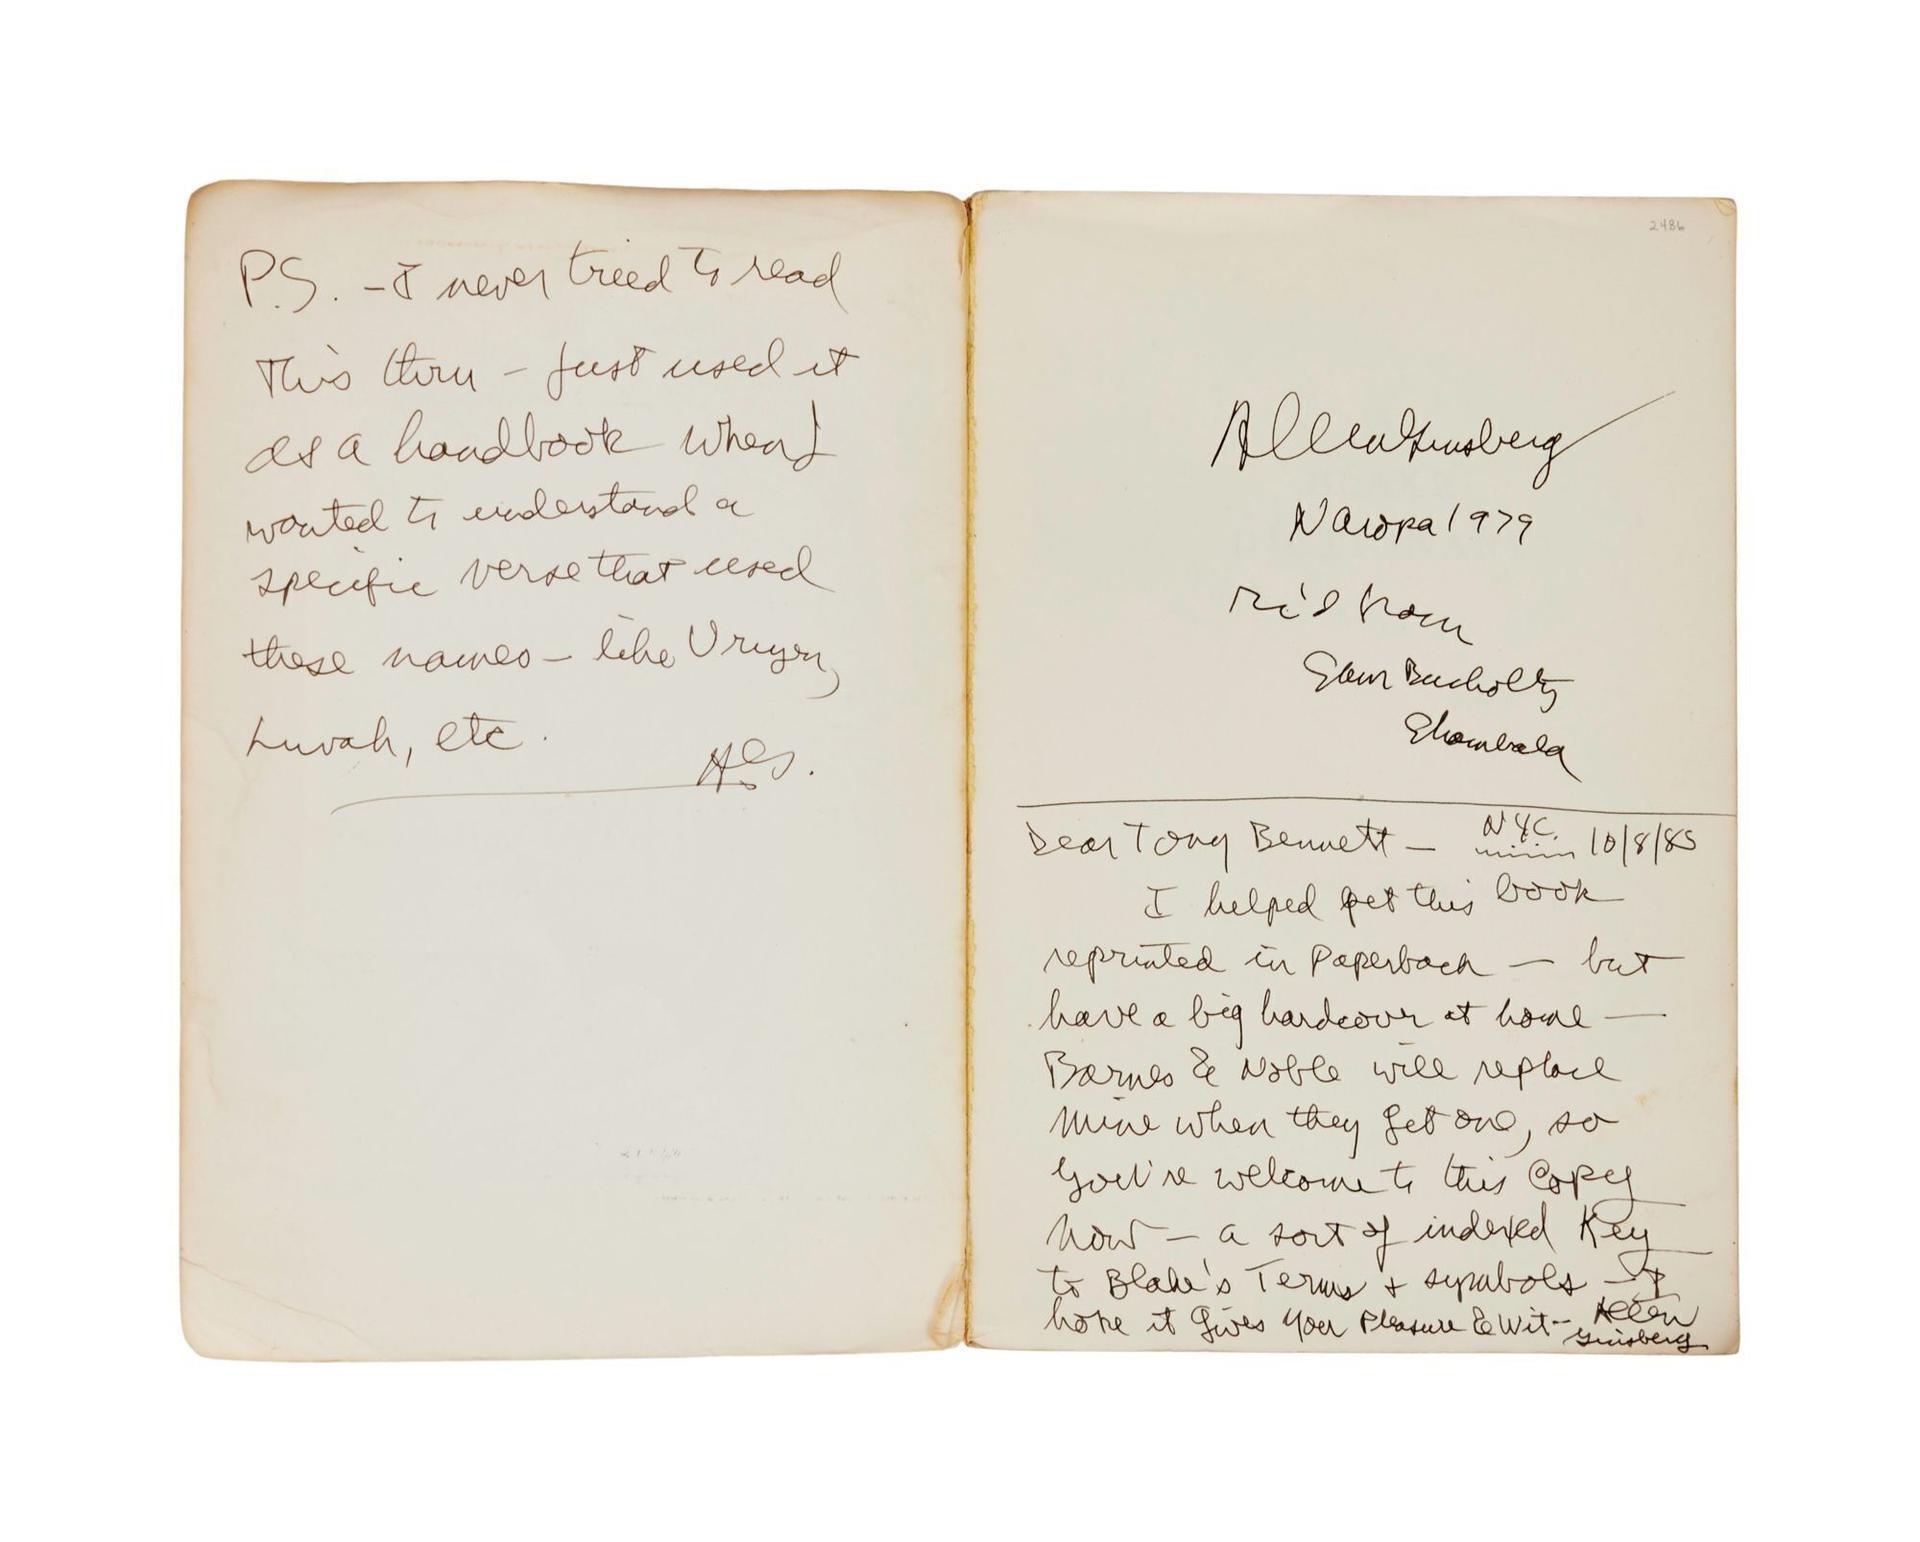 P.S. - I never tried to read
This thru - just used it
as a handbook when I
wanted to understand a
specific verse that used
these names - like Urizen,
Luvah, etc.
AG.
2486
Allen Ginsberg
Naropa 1979
rc'd from
Sam Bercholtz
Shambala
Dear Tony Bennett — NYC. 10/8/85
I helped get this book
reprinted in Paperback — but
have a big hardcover at home —
Barnes & Noble will replace
mine when they get one, so
you're welcome to this Copy
Now — a sort of indexed Key
to Blake's Terms + symbols — I
hope it Gives you Pleasure & Wit-- Allen
Ginsberg